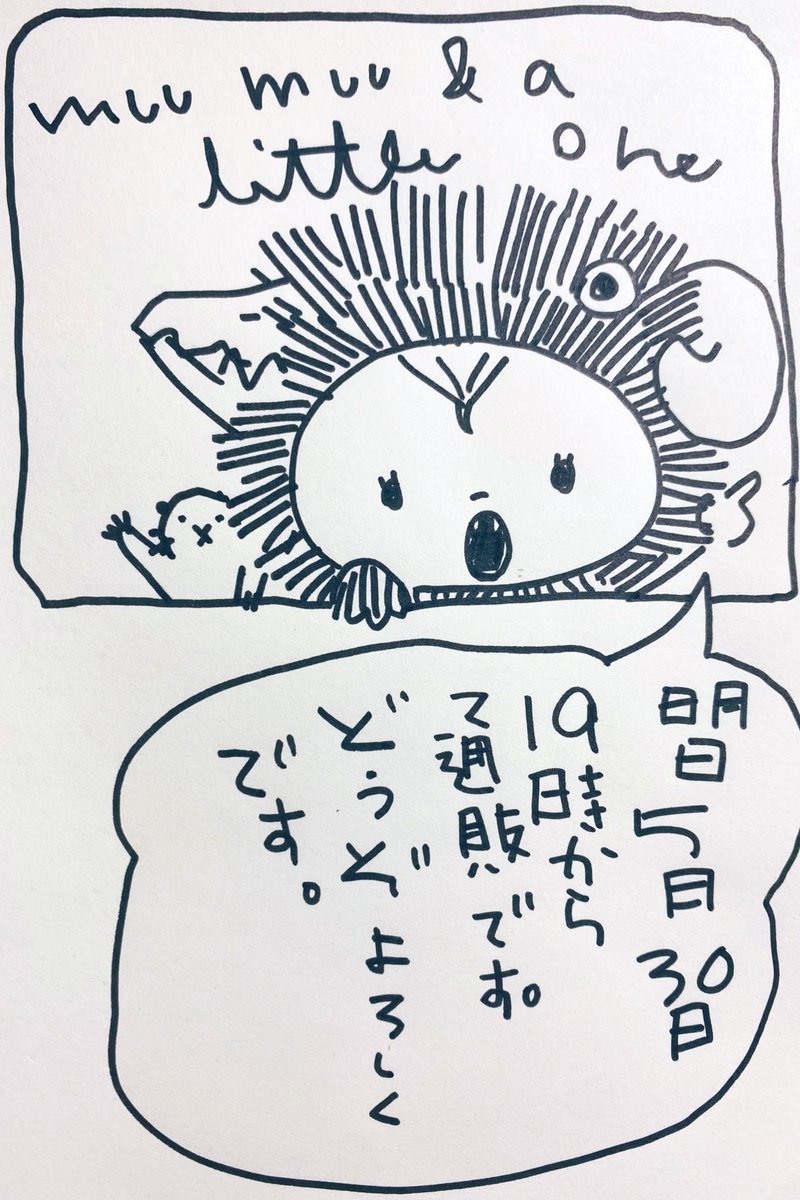 muu muu & a
little one
明日5月30日
19時から
て通販です。
どうぞよろしく
です。